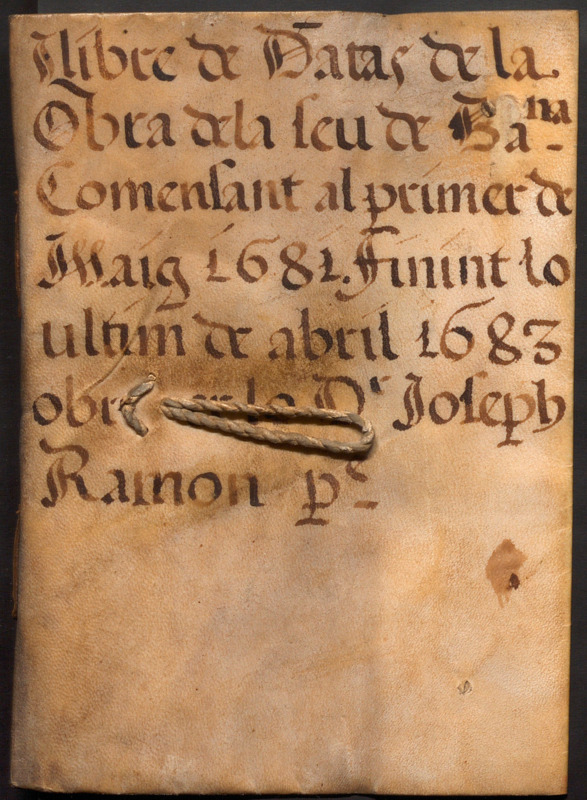 Llibre de Datas de la
Obra dela seu de Bana -
Comensant al primer de
Maig 1681. Finint lo
ultim de abril 1683
lo Dr Joseph
Ramon pe